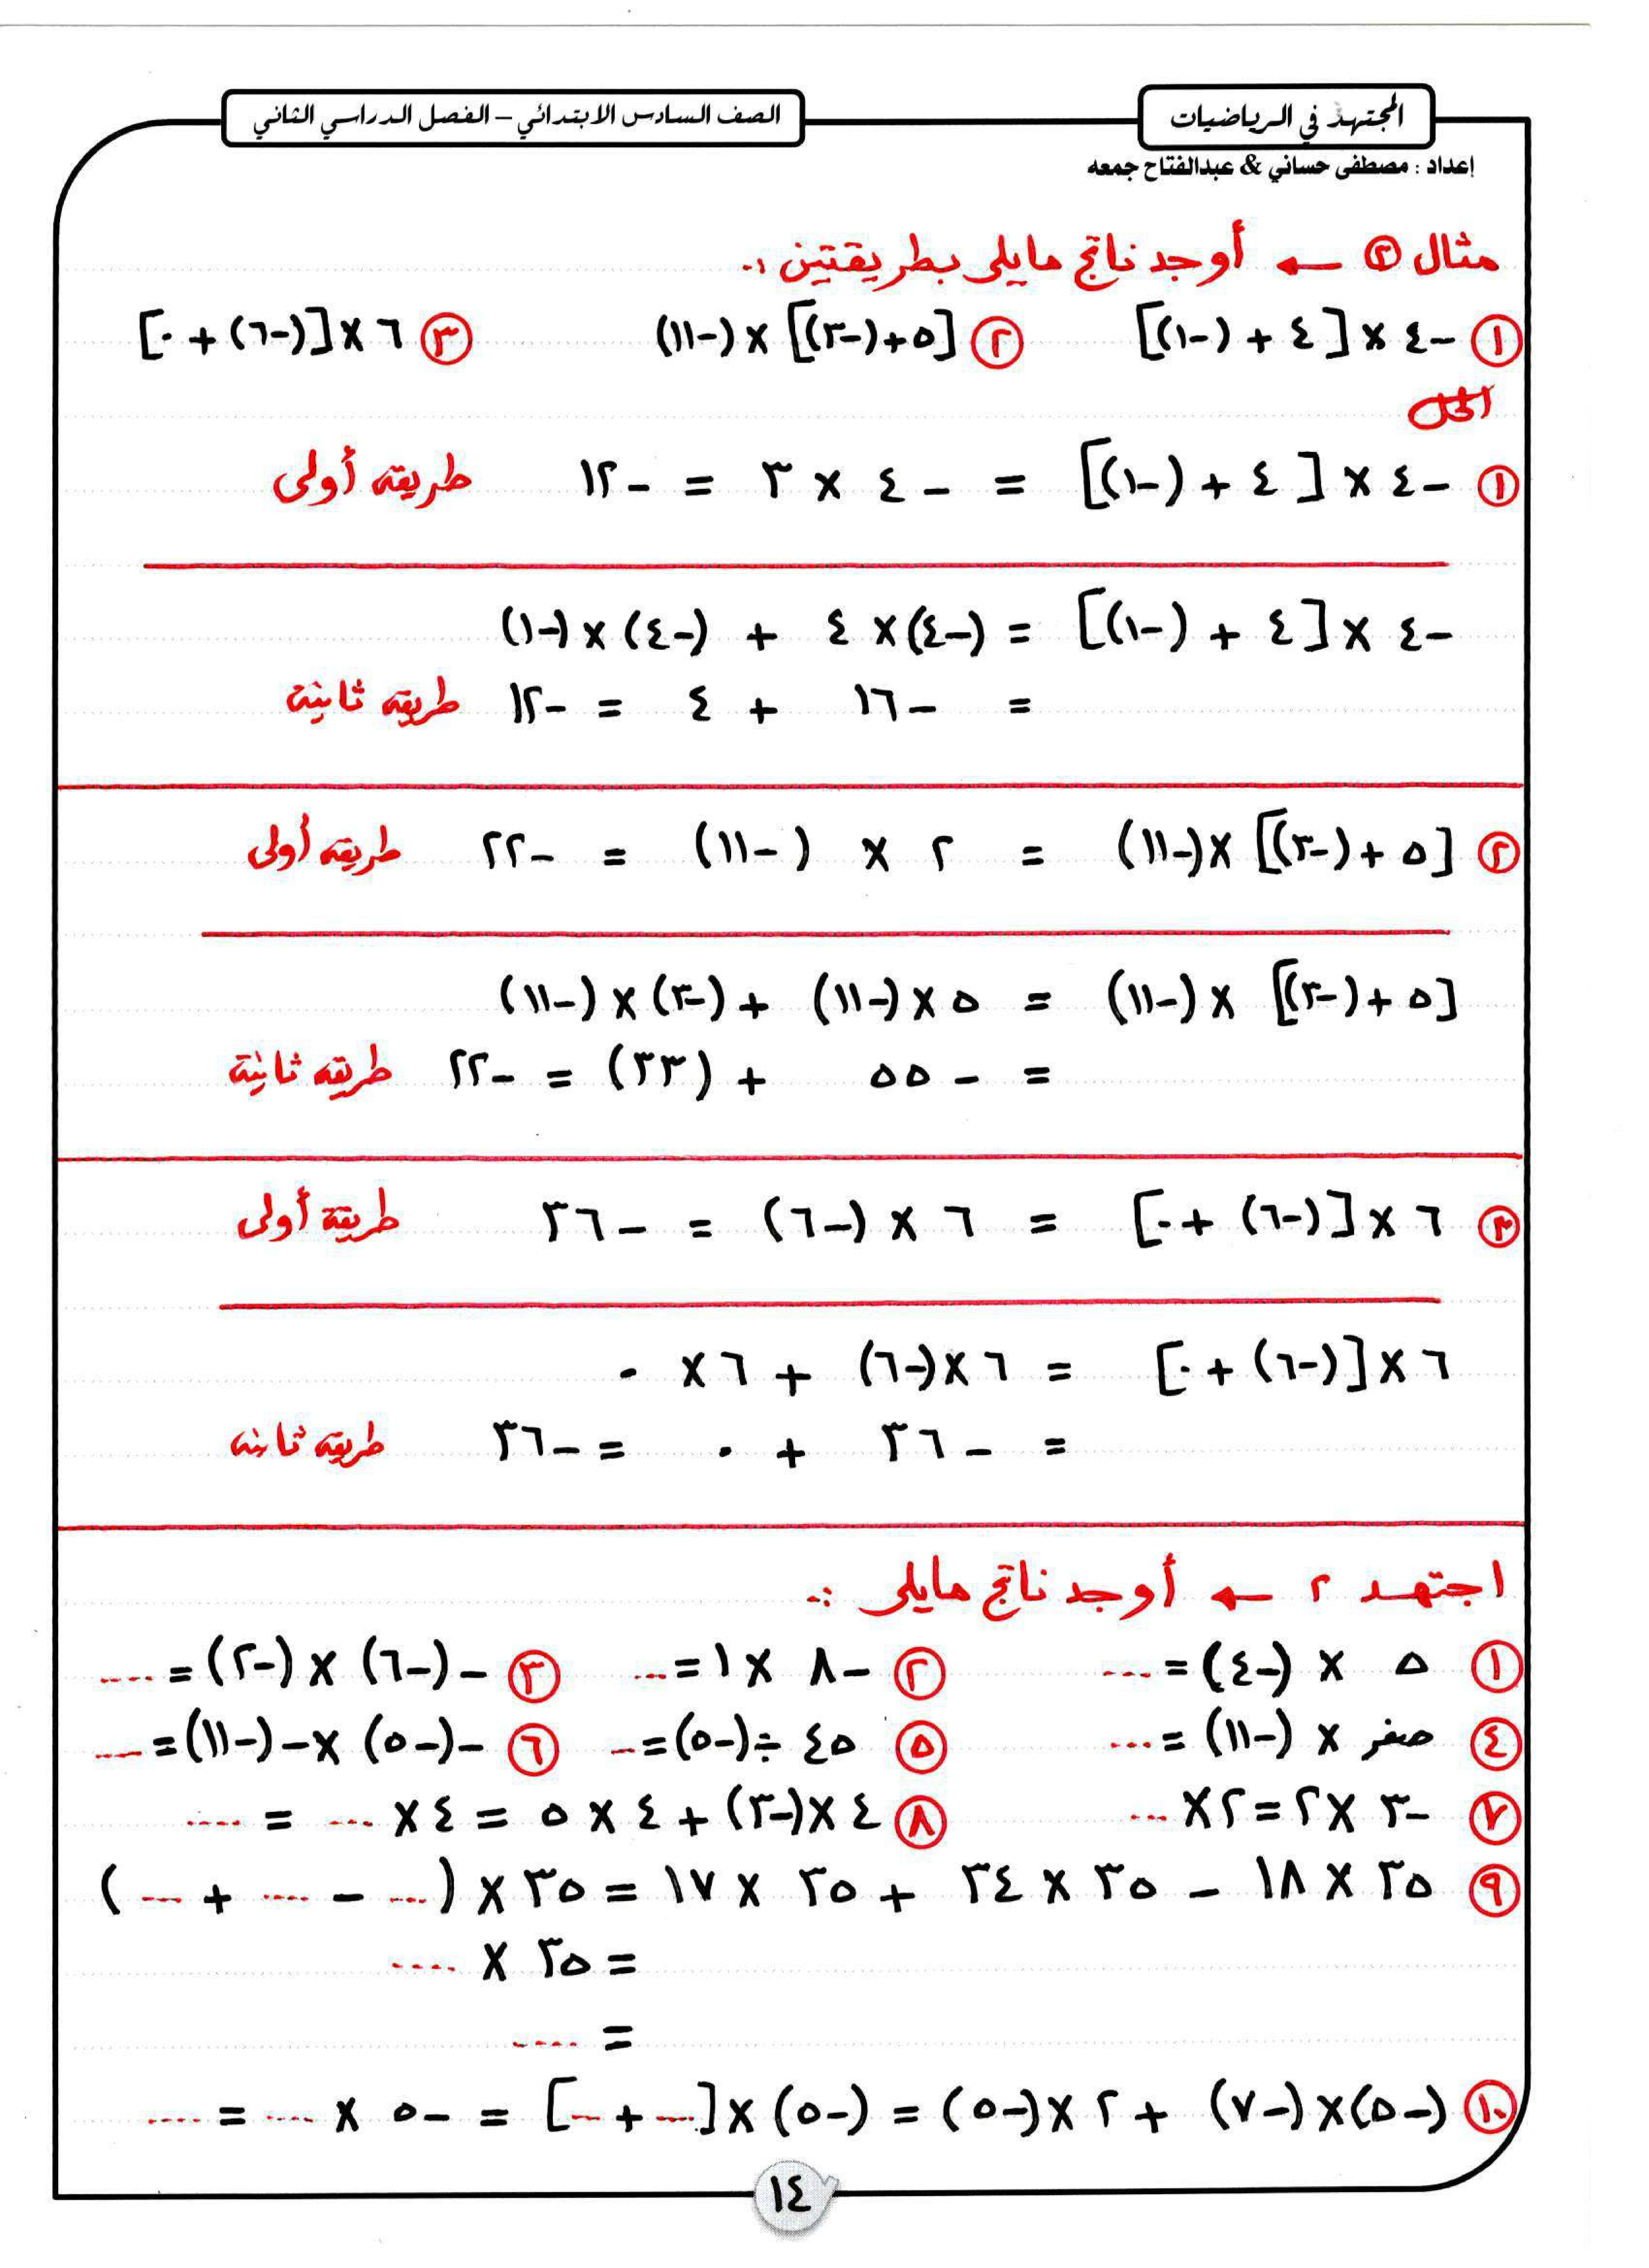 المجتهد في الرياضيات
الصف السادس الابتدائي – الفصل الدراسي الثاني
إعداد : مصطفى حساني & عبدالفتاح جمعه
مثال ٢ ← أوجد ناتج مايلى بطريقتين :-
١ -٤ × [٤ + (-١)] ٢ [٥+(-٣)] × (-١١) ٣ ٦ × [(-٦) + ٠]
الحل
١ -٤ × [٤ + (-١)] = -٤ × ٣ = -١٢ طريقه أولى
-٤ × [٤ + (-١)] = (-٤) × ٤ + (-٤) × (-١)
= -١٦ + ٤ = -١٢ طريقه ثانية
٢ [٥ + (-٣)] × (-١١) = ٢ × (-١١) = -٢٢ طريقه أولى
[٥ + (-٣)] × (-١١) = ٥ × (-١١) + (-٣) × (-١١)
= -٥٥ + (٣٣) = -٢٢ طريقه ثانية
٣ ٦ × [(-٦) + ٠] = ٦ × (-٦) = -٣٦ طريقة أولى
٦ × [(-٦) + ٠] = ٦ × (-٦) + ٦ × ٠
= -٣٦ + ٠ = -٣٦ طريقه ثانيه
اجتهد ٢ ← أوجد ناتج مايلى :-
١ ٥ × (-٤) = .... ٢ -٨ × ١ = .... ٣ -(-٦) × (-٢) = ....
٤ صفر × (-١١) = .... ٥ ٤٥ ÷ (-٥) = .... ٦ -(-٥) × -(-١١) = ....
٧ -٣ × ٢ = ٢ × .... ٨ ٤ × (-٣) + ٤ × ٥ = ٤ × .... = ....
٩ ٣٥ × ١٨ - ٣٥ × ٣٤ + ٣٥ × ١٧ = ٣٥ × (.... - .... + ....)
= ٣٥ × ....
= ....
١٠ (-٥) × (-٧) + ٢ × (-٥) = (-٥) × [.... + ....] = -٥ × .... = ....
١٤